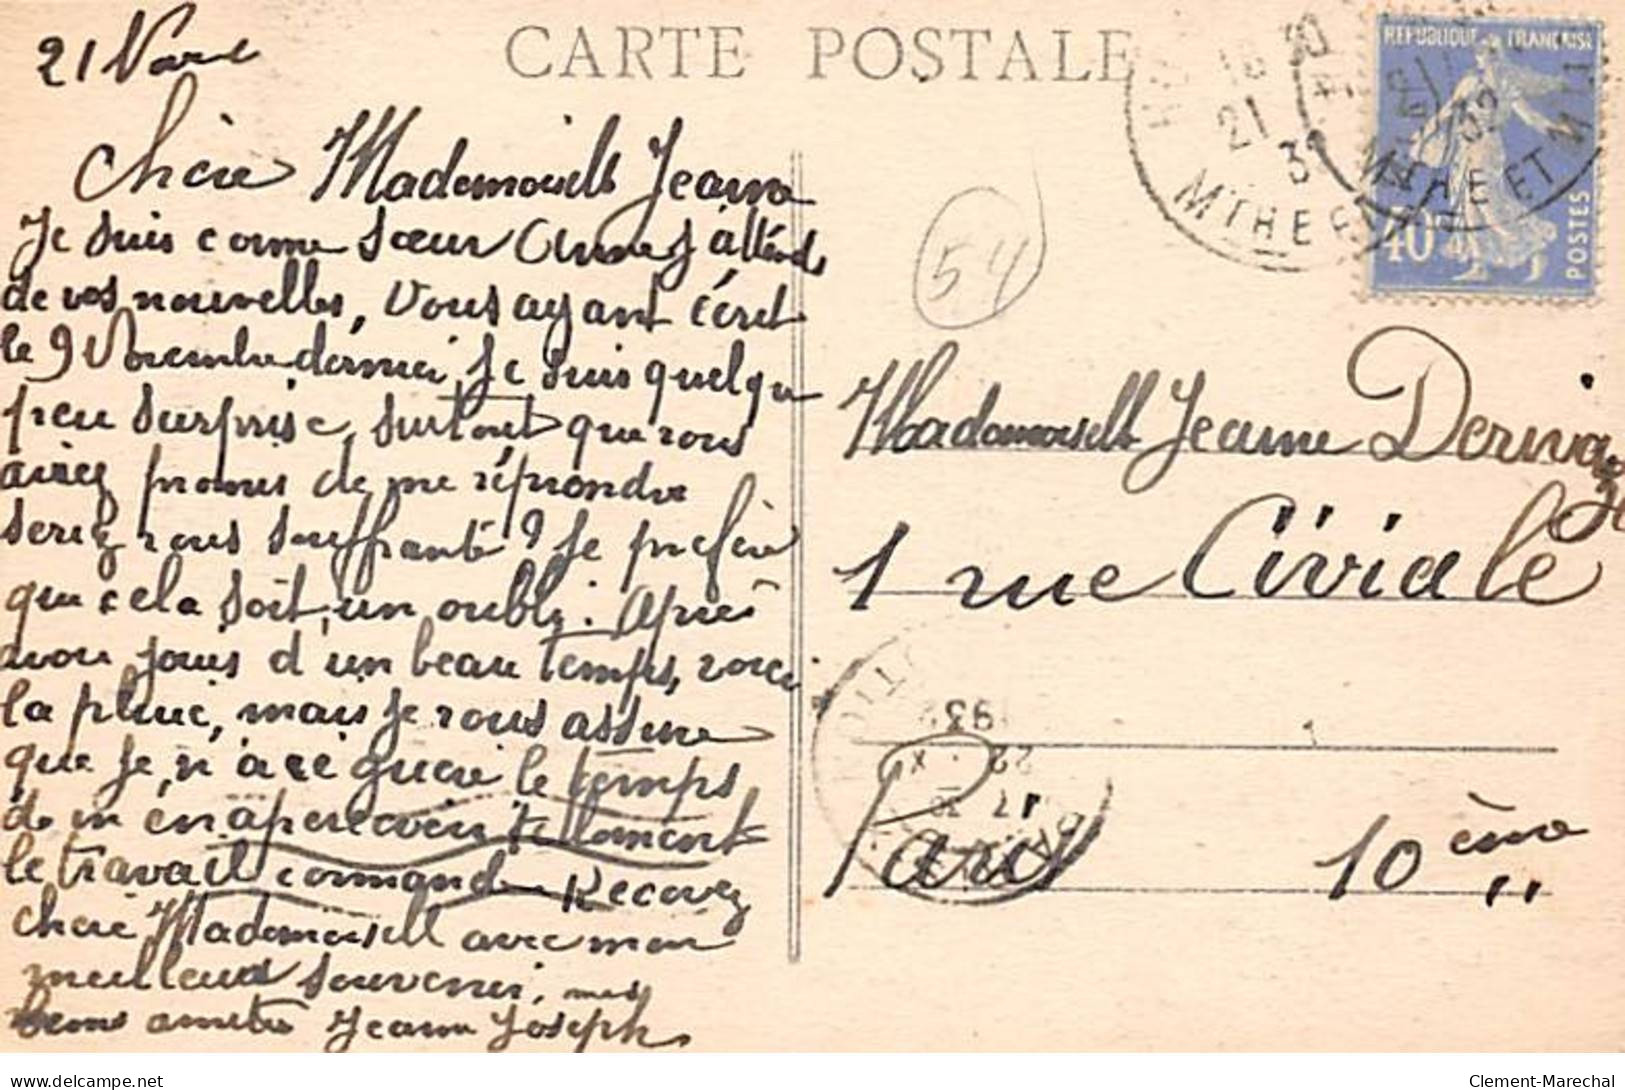 21 Nov
CARTE POSTALE
Chère Mademoiselle Jeanne
Je suis comme Sœur Anne J'attends
de vos nouvelles, Vous ayant écrit
le 9 Novembre dernier, Je suis quelque
peu surprise, surtout que vous
aviez promis de me répondre
serez vous souffrante? Je préfère
que cela soit un oubli. Après
avoir jouis d'un beau temps, voici
la pluie, mais je vous assure
que Je n'ai guère le temps
de m'en apercevoir tellement
le travail commande Recevez
chère Mademoiselle avec mon
meilleur souvenir, mes
bonnes amitiés Jeanne Joseph
54
REPUBLIQUE FRANÇAISE
40c
POSTES
18 30
21
MTHE ET M
MTHE ET M
Mademoiselle Jeanne
1 rue Civiale
Paris 10ème
1932
22 X
17
Clement-Marechal